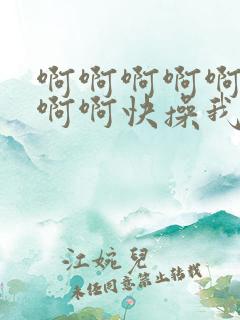 啊啊啊啊啊
啊啊快操我
江婉兒
未经同意禁止转载